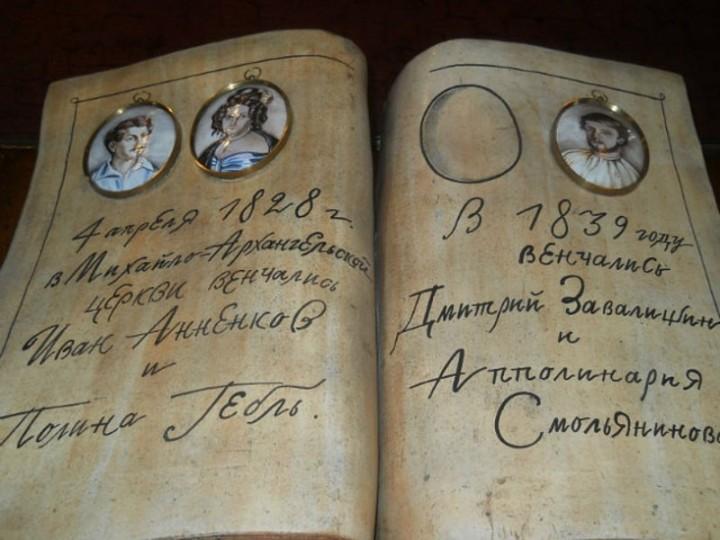 4 апреля 1828 г.
в Михайло-Архангельской
церкви венчались
Иван Анненков
и
Полина Гебль.
В 1839 году
венчались
Дмитрий Завалишин
и
Апполинария
Смольянинова